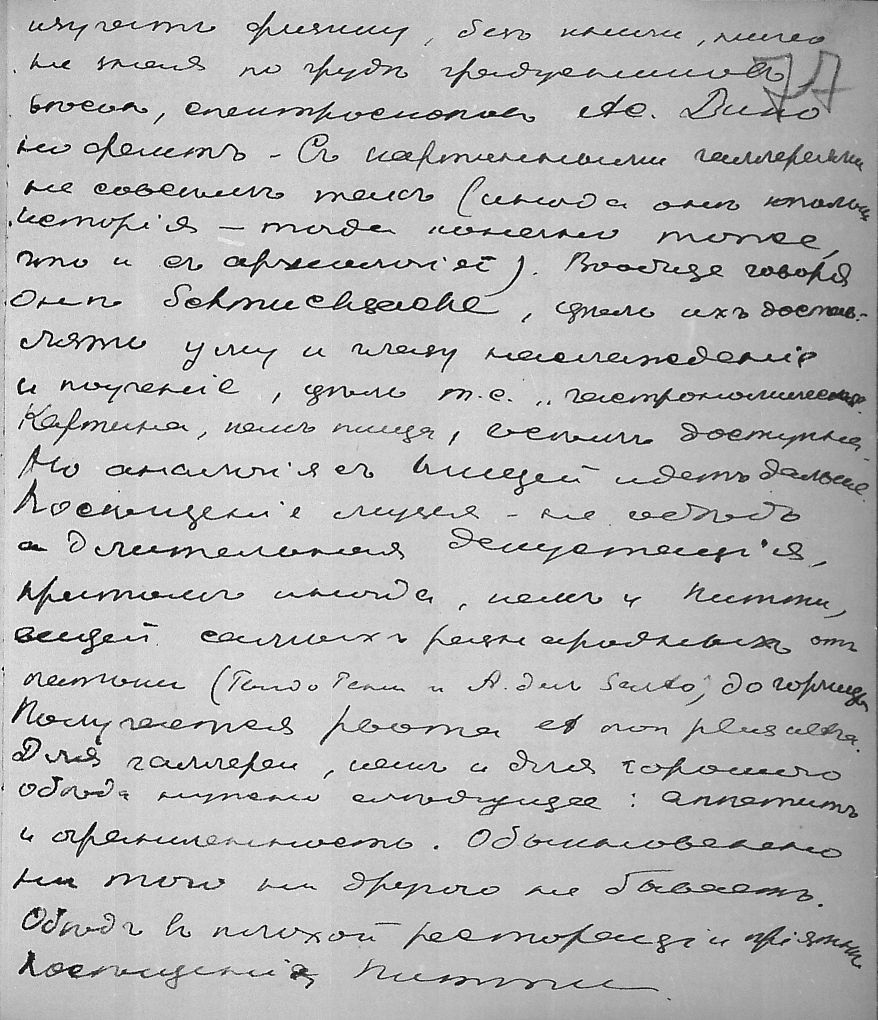 изучать физику, безъ книги, ничего
не зная по грудѣ градусниковъ
вѣсовъ, спектроскоповъ etc. Дико
но фактъ - Съ картинными галлереями
не совсѣмъ такъ (иногда онѣ только
исторія — тогда конечно тоже,
что и съ археологіей). Вообще говоря
онѣ Schmucksache, цѣль ихъ достав-
лять уму и глазу наслажденіе
и поученіе, цѣль т.с. „гастрономическая.
Картина, какъ пища, всѣмъ доступна.
Но аналогія съ пищей идетъ дальше.
Посѣщеніе музея - не обѣдъ
а длительная дегустація,
притомъ иногда, какъ и Питти,
вещей самыхъ разнообразныхъ отъ
патоки (Гвидо Рени и A. дель Sarto) до горчицы
Получается рвота et non plus ultra.
Для галлереи, какъ и для хорошаго
обѣда нужно слѣдующее: аппетитъ
и ограниченность. Обыкновенно
ни того ни другого не бываетъ.
Обѣдъ въ плохой ресторации пріятнѣй
посѣщенія Питти.
77